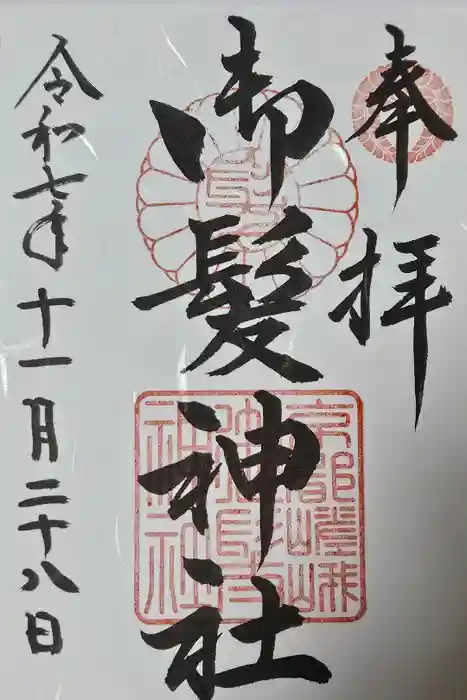 奉拝
御髪神社
京都嵯峨
御髪神社
令和七年十一月二十八日